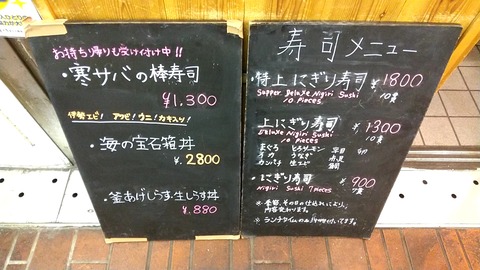 お持ち帰りも受け付け中!!
・寒サバの棒寿司
¥1,300
伊勢エビ! アワビ!ウニ!カキ入り!
・海の宝石箱丼
¥.2800
・釜あげしらす生しらす丼
¥.880
寿司メニュー
・特上にぎり寿司 ¥1800
Supper Deluxe Nigiri Sushi 10貫
10 pieces
・上にぎり寿司 ¥1300
Deluxe Nigiri Sushi 10貫
10 pieces
まぐろ とろサーモン
イカ うなぎ
カンパチ 生エビ 鯛
・にぎり寿司 ¥900
Nigiri Sushi 7pieces 7貫
※季節、その日の仕込みにより、
内容変わります。
※ランチタイムのみ